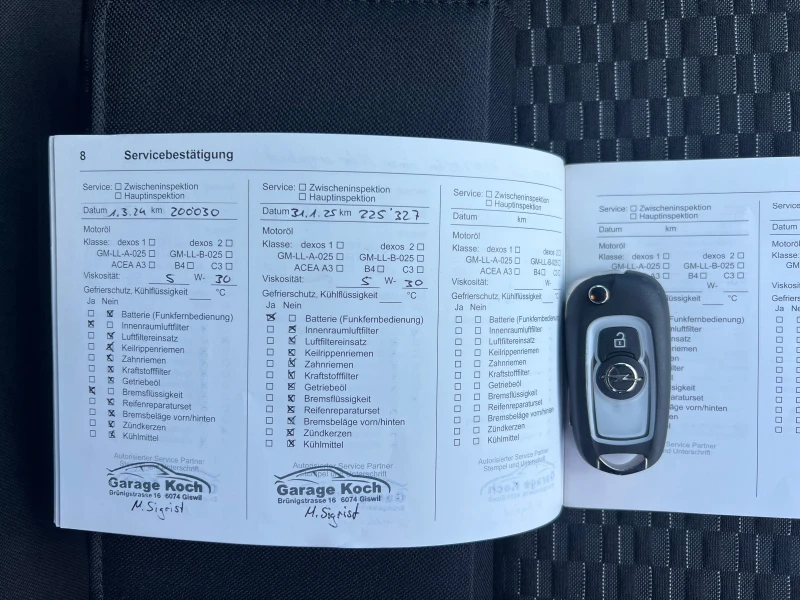 8 Servicebestätigung
Service: ☐ Zwischeninspektion
☐ Hauptinspektion
Datum 1.3.24 km 200'030
Motoröl
Klasse: dexos 1 ☐ dexos 2 ☐
GM-LL-A-025 ☐ GM-LL-B-025 ☐
ACEA A3 ☐ B4 ☐ C3 ☐
Viskosität: 5 W- 30
Gefrierschutz, Kühlflüssigkeit °C
Ja Nein
☐ ☒ Batterie (Funkfernbedienung)
☒ ☐ Innenraumluftfilter
☐ ☒ Luftfiltereinsatz
☐ ☒ Keilrippenriemen
☐ ☒ Zahnriemen
☐ ☒ Kraftstofffilter
☐ ☒ Getriebeöl
☒ ☐ Bremsflüssigkeit
☐ ☒ Reifenreparaturset
☐ ☒ Bremsbeläge vorn/hinten
☐ ☒ Zündkerzen
☐ ☒ Kühlmittel
Autorisierter Service Partner
Garage Koch
Brünigstrasse 16 6074 Giswil
M. Sigrist
Service: ☐ Zwischeninspektion
☐ Hauptinspektion
Datum 31.1.25 km 225'327
Motoröl
Klasse: dexos 1 ☐ dexos 2 ☐
GM-LL-A-025 ☐ GM-LL-B-025 ☐
ACEA A3 ☐ B4 ☐ C3 ☐
Viskosität: 5 W- 30
Gefrierschutz, Kühlflüssigkeit °C
Ja Nein
☒ ☐ Batterie (Funkfernbedienung)
☐ ☒ Innenraumluftfilter
☐ ☒ Luftfiltereinsatz
☐ ☒ Keilrippenriemen
☐ ☒ Zahnriemen
☐ ☒ Kraftstofffilter
☐ ☒ Getriebeöl
☐ ☒ Bremsflüssigkeit
☐ ☒ Reifenreparaturset
☐ ☒ Bremsbeläge vorn/hinten
☐ ☒ Zündkerzen
☐ ☒ Kühlmittel
Autorisierter Service Partner
Garage Koch
Brünigstrasse 16 6074 Giswil
M. Sigrist
Service: ☐ Zwischeninspektion
☐ Hauptinspektion
Datum km
Motoröl
Klasse: dexos 1 ☐ dexos 2 ☐
GM-LL-A-025 ☐ GM-LL-B-025
ACEA A3 ☐ B4 ☐ C3 ☐
Viskosität: W-
Gefrierschutz, Kühlflüssigkeit
Ja Nein
☐ ☐ Batterie (Funkfernbedienung)
☐ ☐ Innenraumluftfilter
☐ ☐ Luftfiltereinsatz
☐ ☐ Keilrippenriemen
☐ ☐ Zahnriemen
☐ ☐ Kraftstofffilter
☐ ☐ Getriebeöl
☐ ☐ Bremsflüssigkeit
☐ ☐ Reifenreparaturset
☐ ☐ Bremsbeläge vorn/hinten
☐ ☐ Zündkerzen
☐ ☐ Kühlmittel
Autorisierter Service Partner
Stempel und Unterschrift
Service: ☐ Zwischeninspektion
☐ Hauptinspektion
Datum km
Motoröl
Klasse: dexos 1 ☐ dexos 2 ☐
GM-LL-A-025 ☐ GM-LL-B-025 ☐
ACEA A3 ☐ B4 ☐ C3 ☐
W-
Kühlflüssigkeit °C
(Funkfernbedienung)
Service Partner
Unterschrift
Service
Datum
Motoröl
Klasse:
Ja